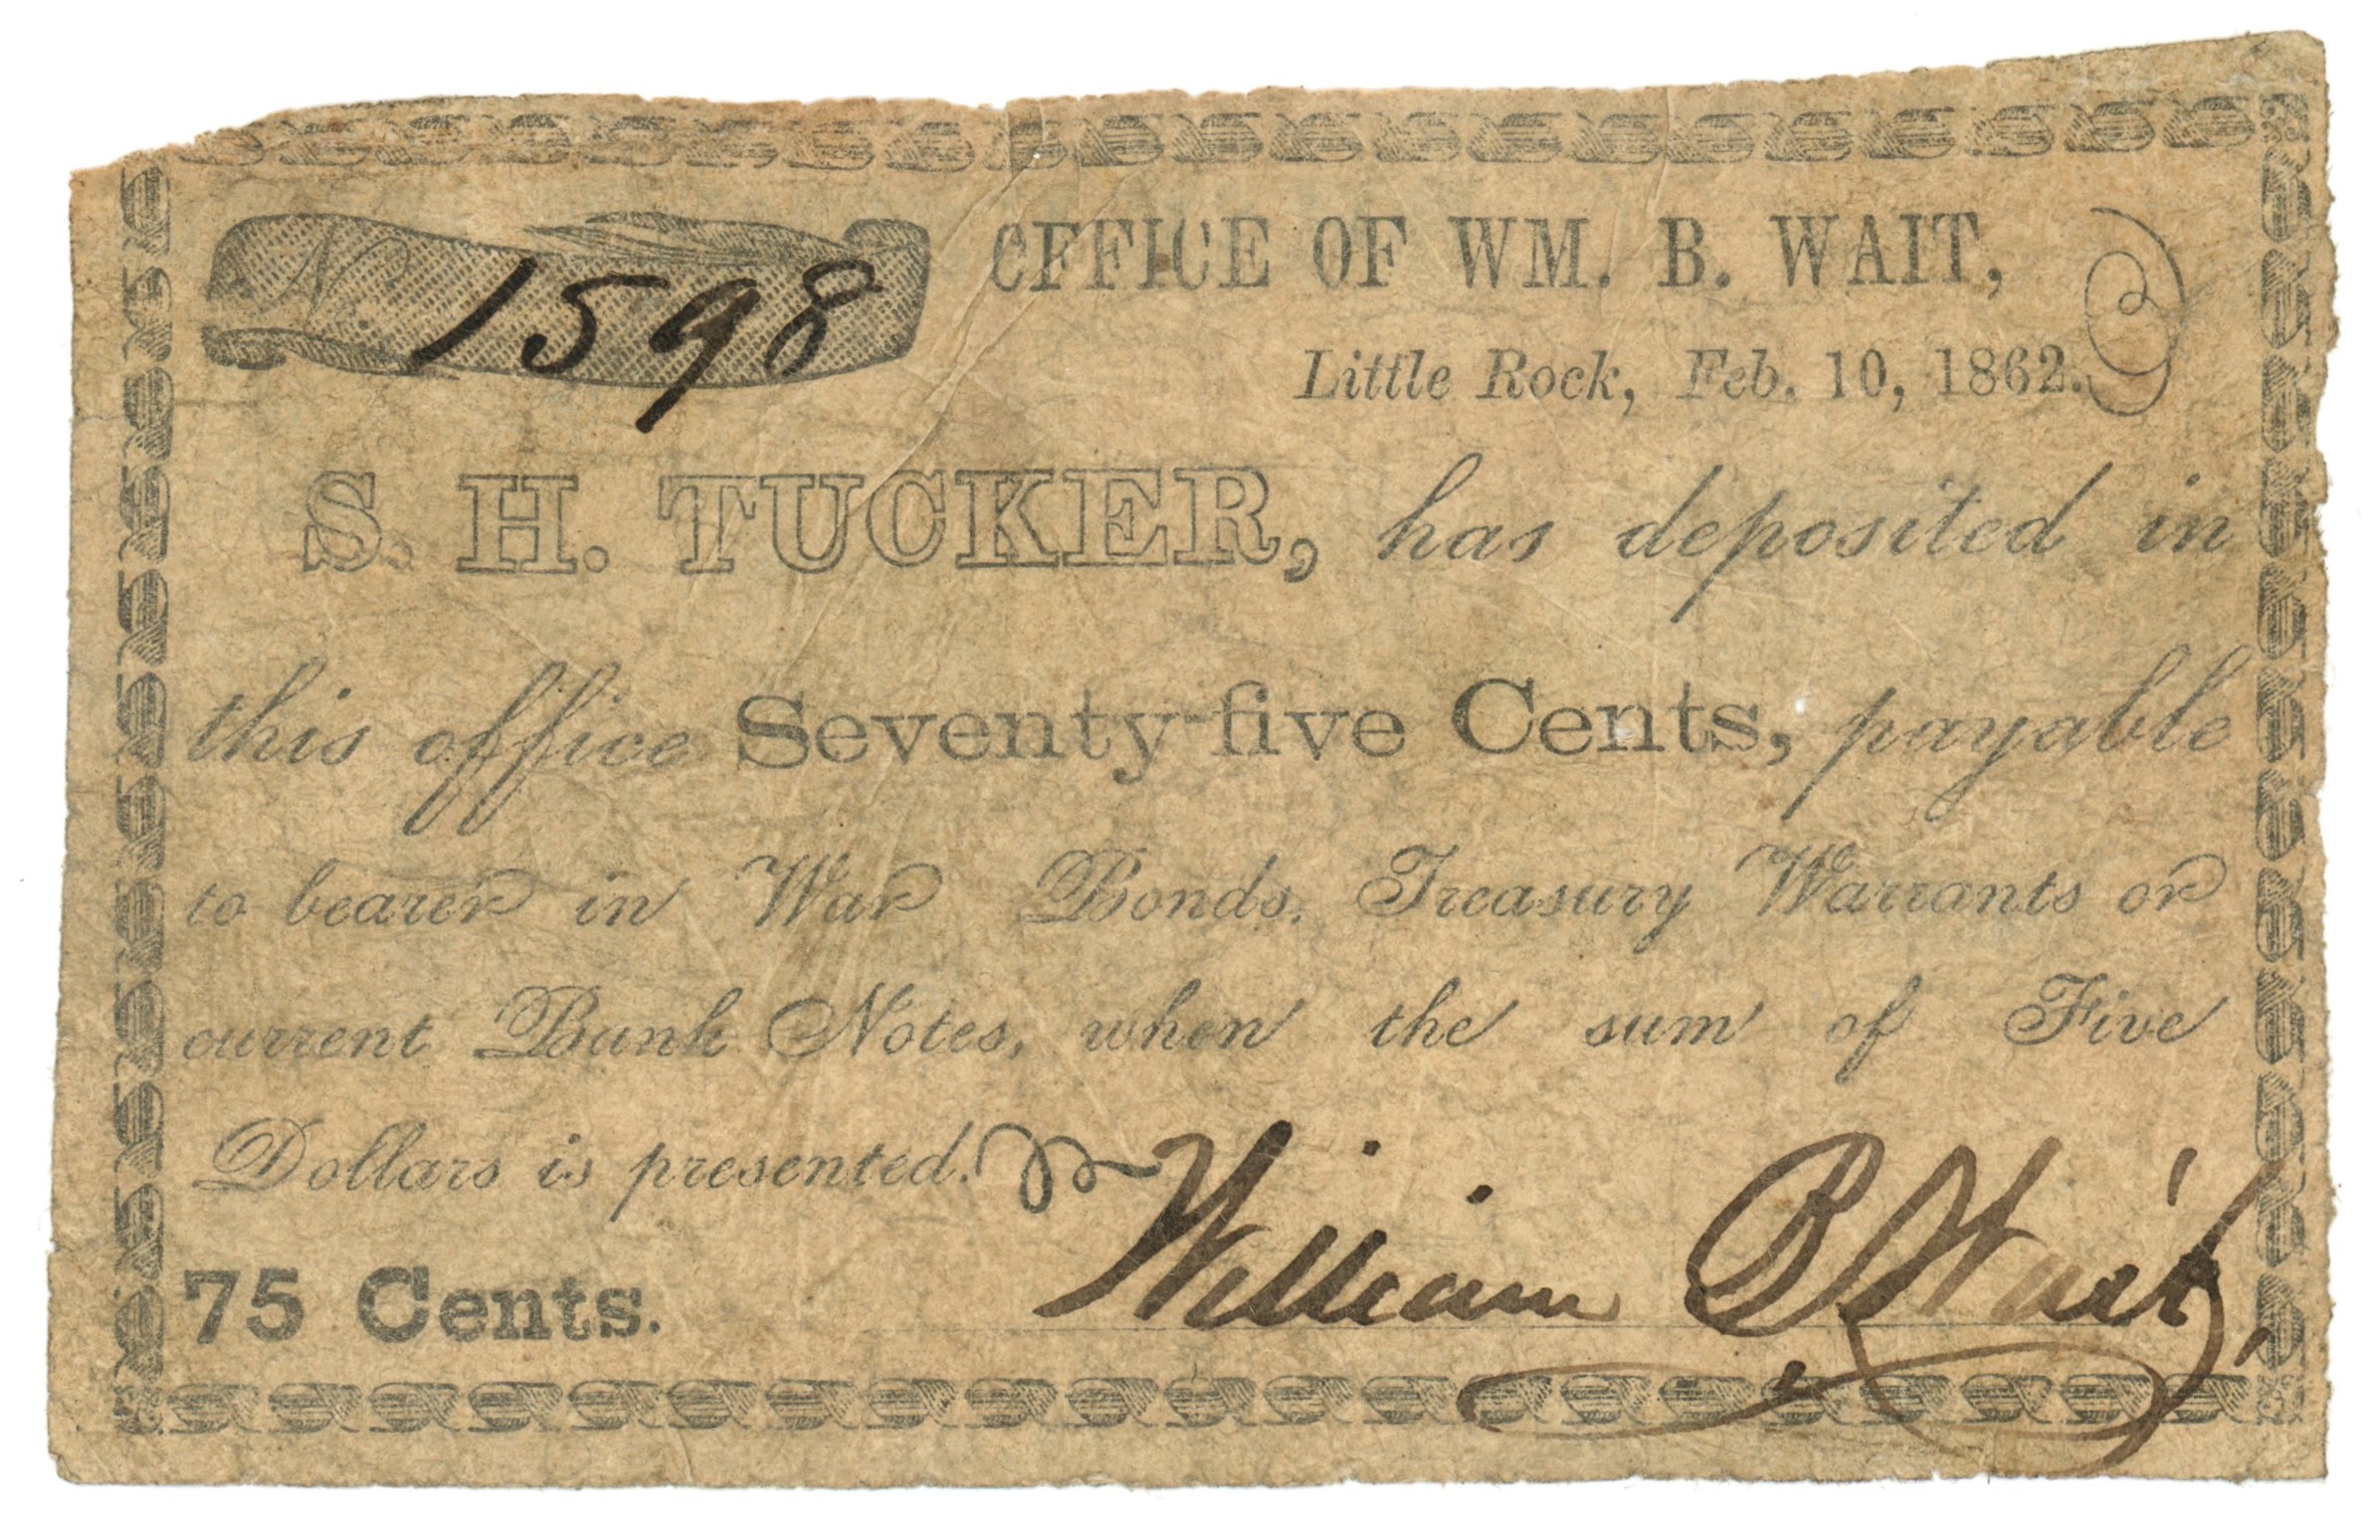 No. 1598
OFFICE OF WM. B. WAIT,
Little Rock, Feb. 10, 1862.
S. H. TUCKER, has deposited in
this office Seventy-five Cents, payable
to bearer in War Bonds, Treasury Warrants or
current Bank Notes, when the sum of Five
Dollars is presented.
William B Wait
75 Cents.